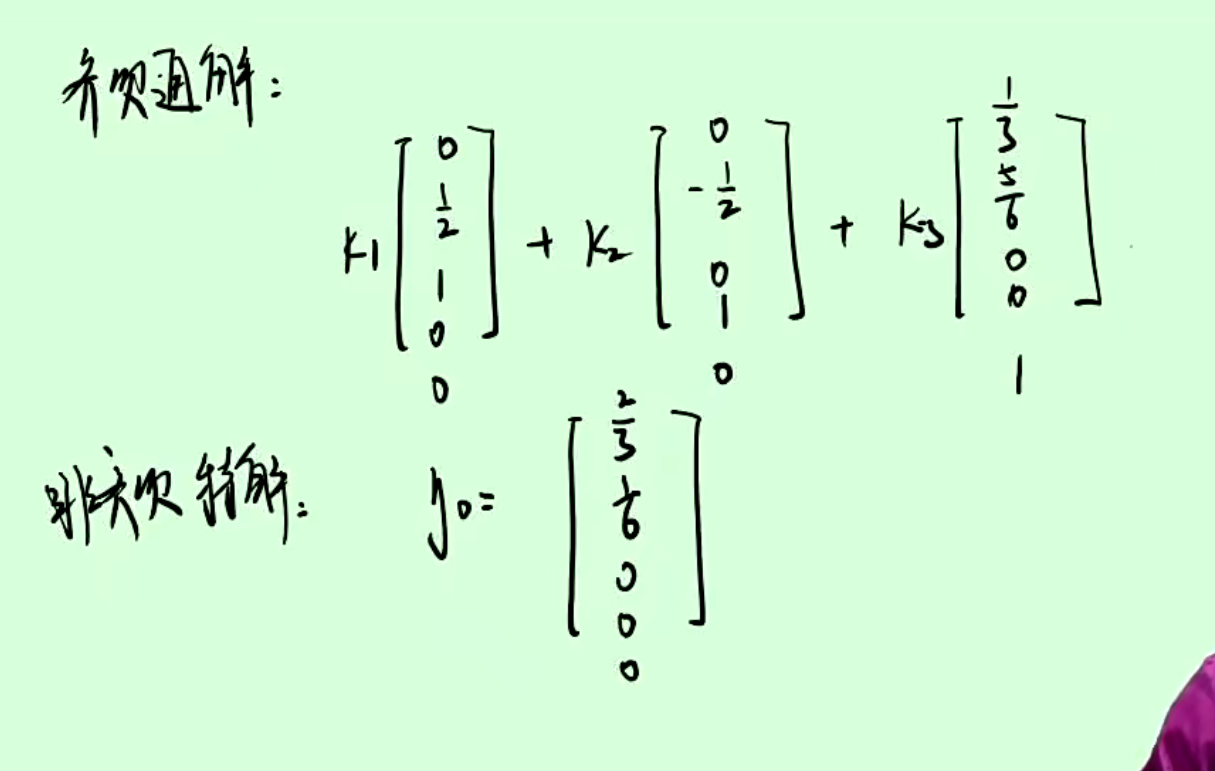 齐次通解:
k1 [0 1/2 1 0 0] + k2 [0 -1/2 0 1 0] + k3 [1/3 5/6 0 0 1]
非齐次特解: y0= [2/3 1/6 0 0 0]